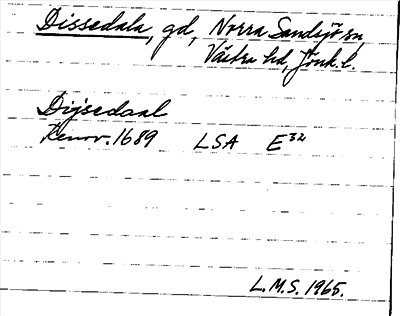 Dissedala, gd, Norra Sandsjö sn,
Västra hd, Jönk. l.
Dijsedaal
Renov. 1689 LSA E32
L.M.S. 1965.